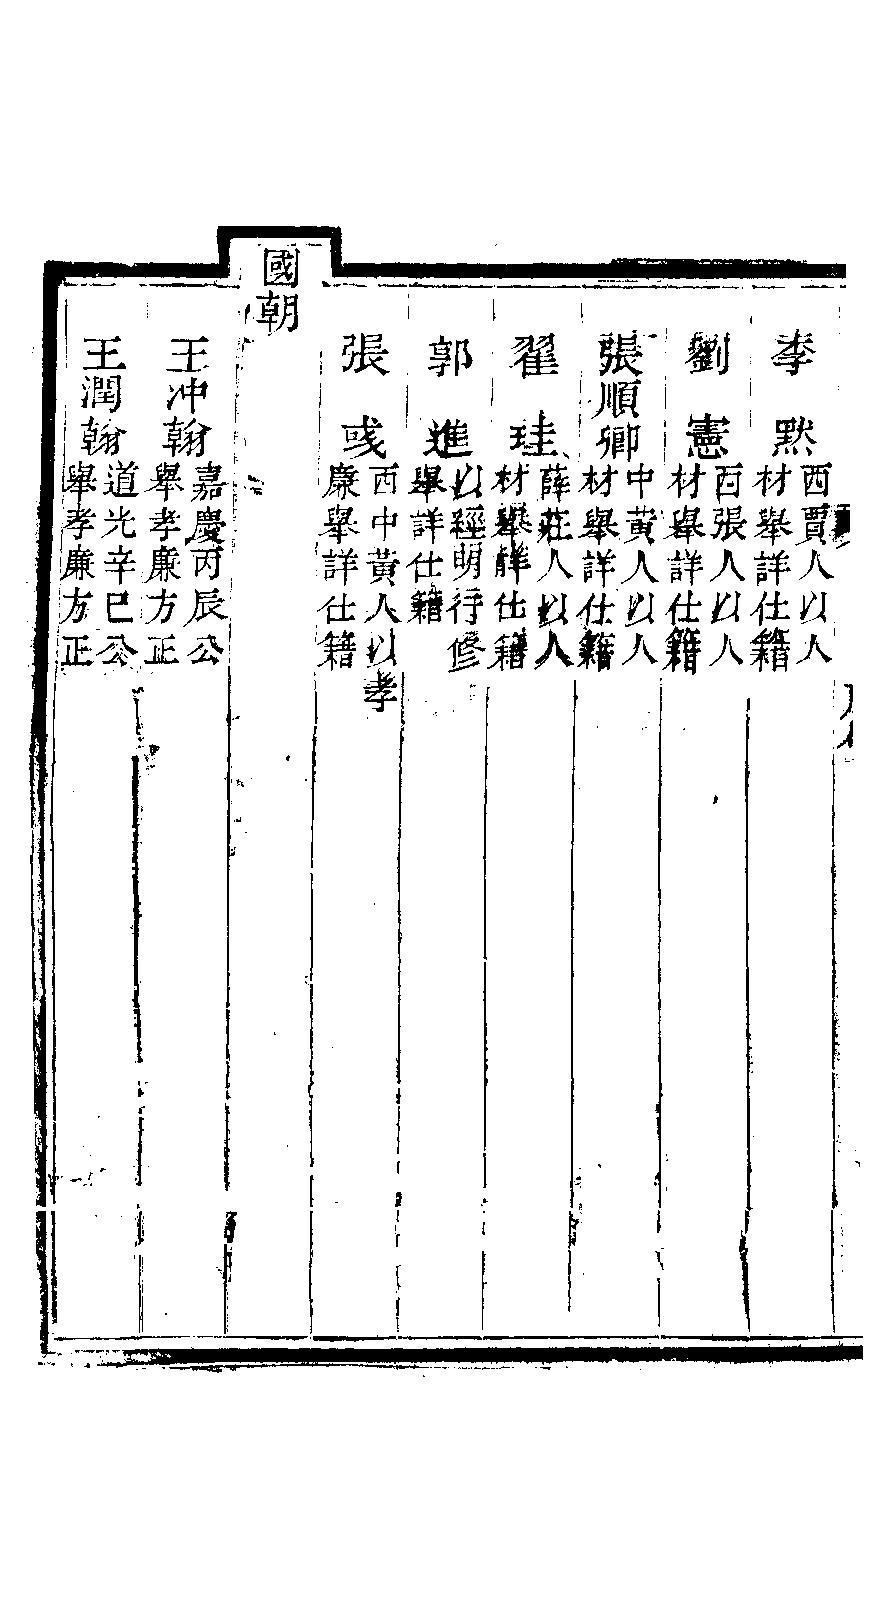 李黙 西賈人以人材舉詳仕籍
劉憲 西張人以人材舉詳仕籍
張順卿 中黃人以人材舉詳仕籍
翟珪 薛莊人以人材舉詳仕籍
郭進 以經明行修舉詳仕籍
張彧 西中黃人以孝廉舉詳仕籍
國朝
王冲翰 嘉慶丙辰公舉孝廉方正
王潤翰 道光辛巳公舉孝廉方正